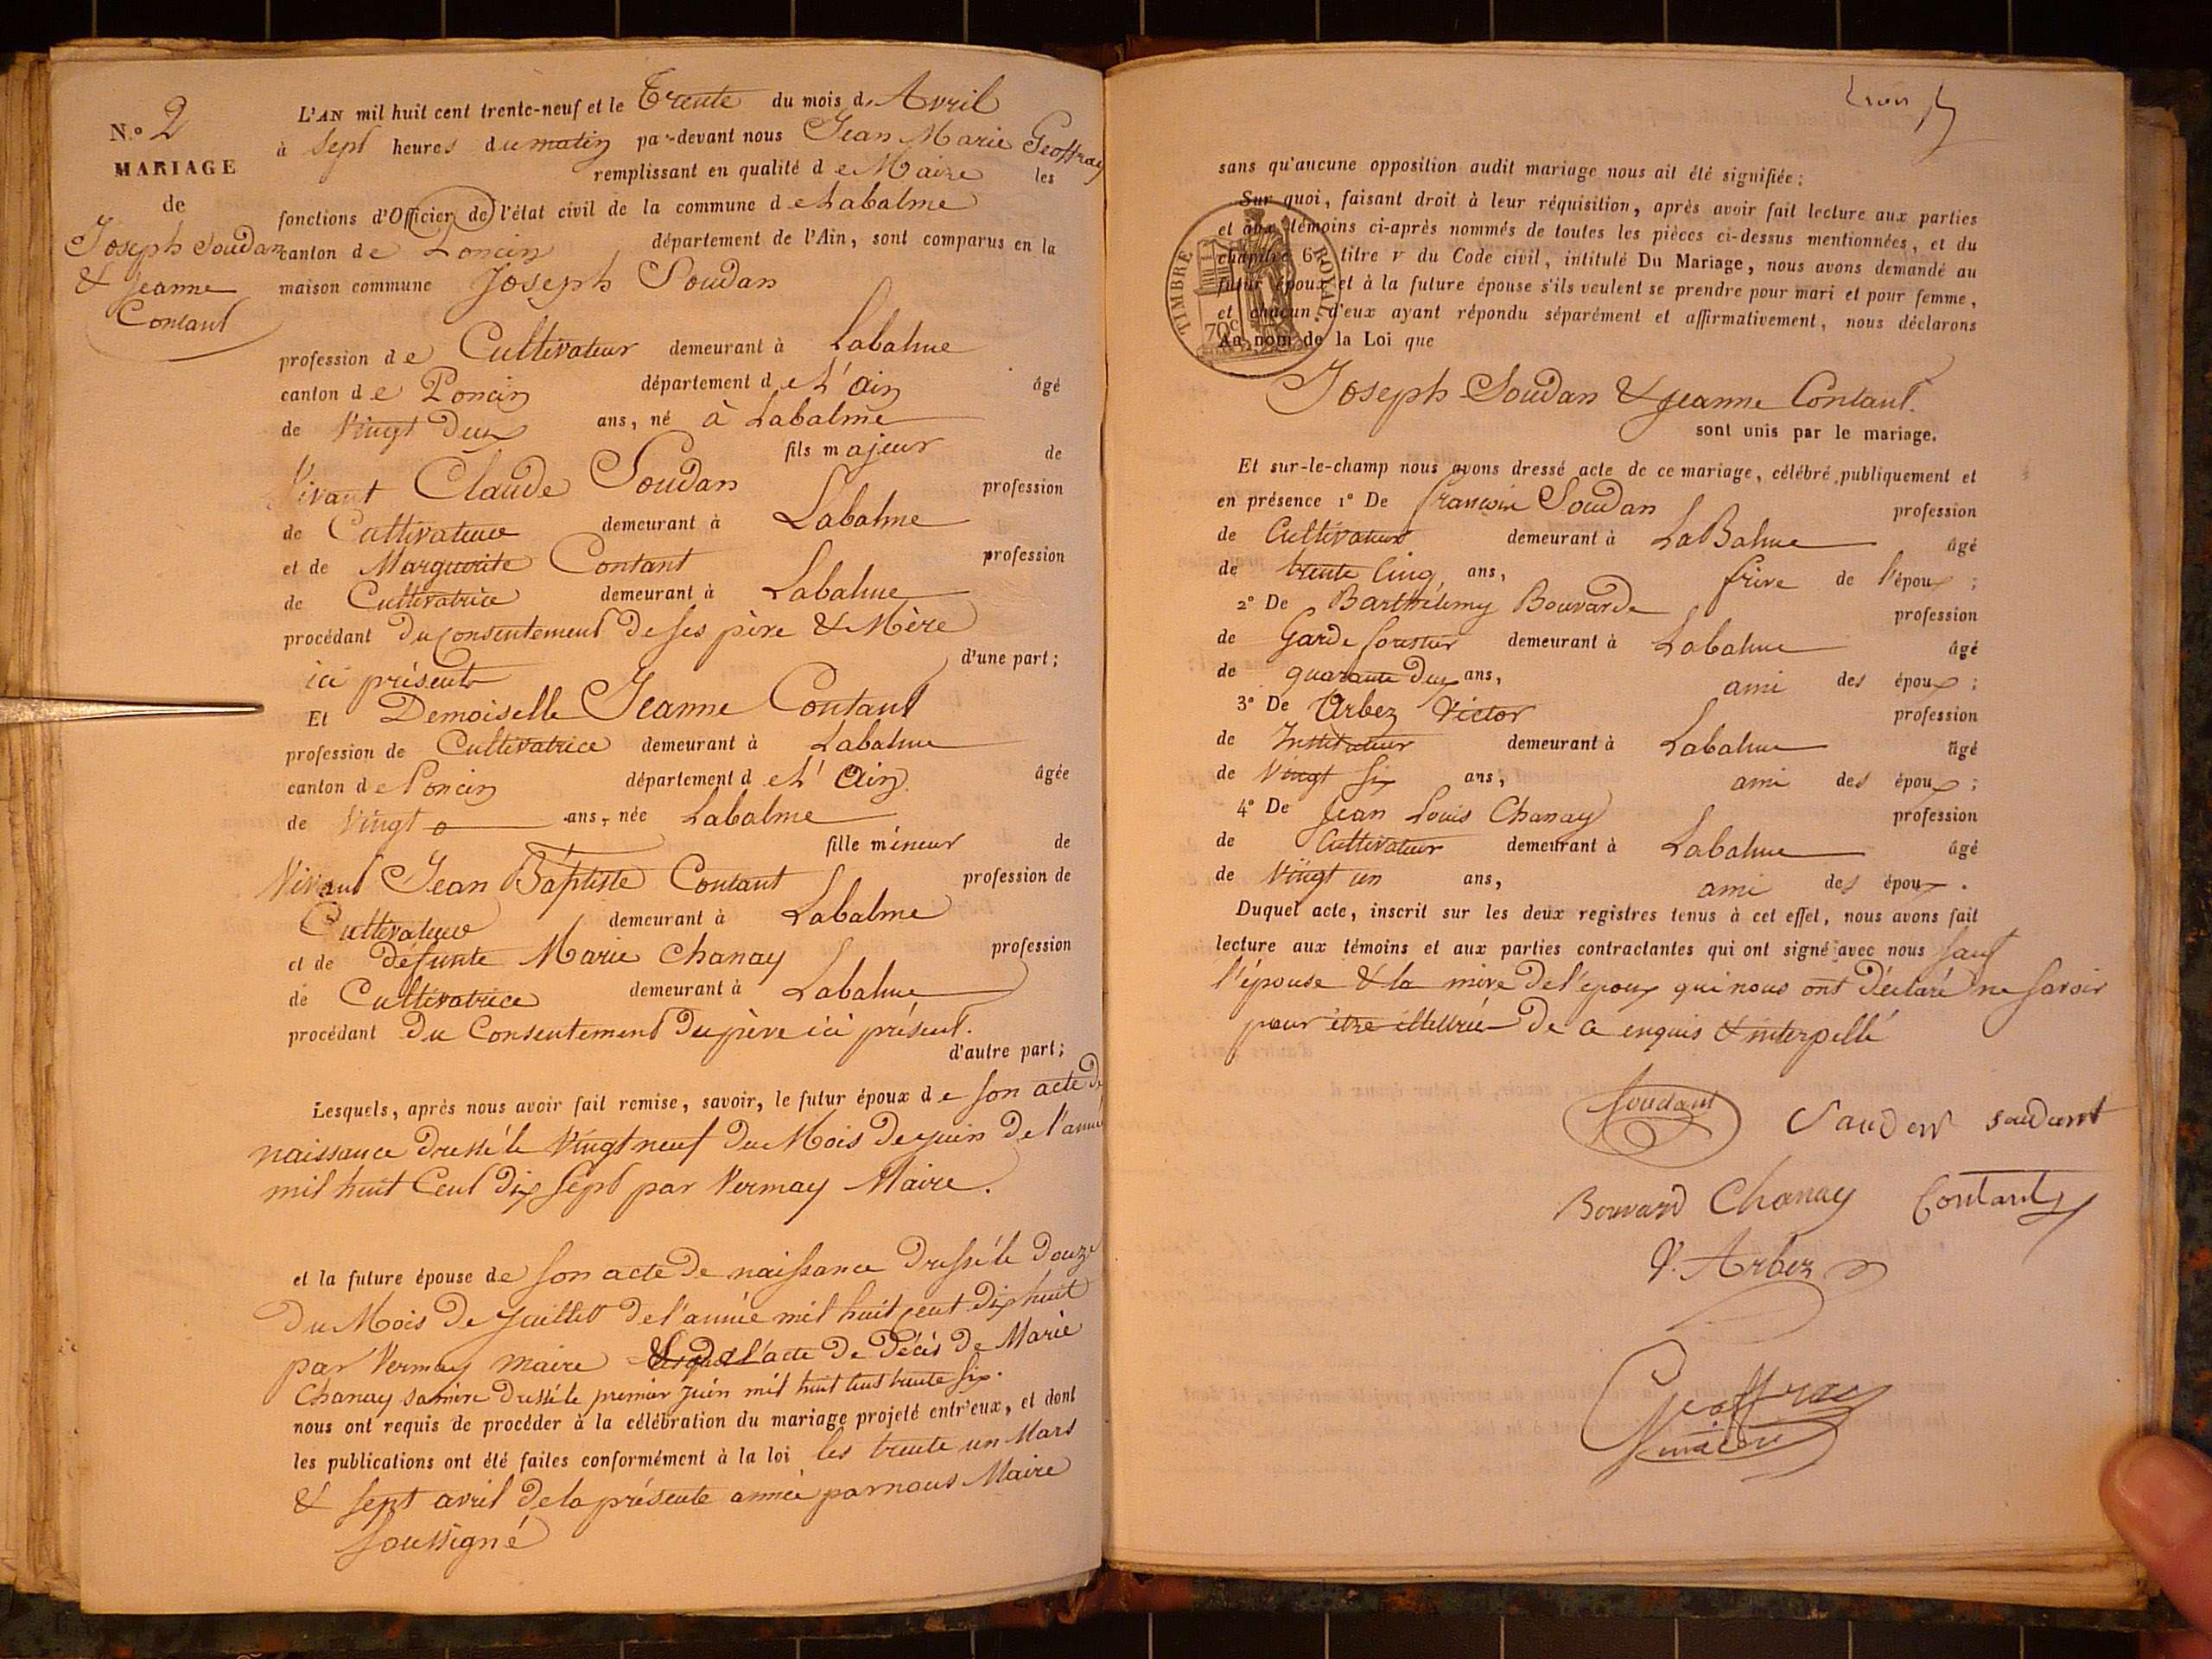 N.o 2
MARIAGE
de
Joseph Soudan
& Jeanne
Contant
L'AN mil huit cent trente-neuf et le Trente du mois d. Avril
à Sept heures du matin par-devant nous Jean Marie Geoffray
remplissant en qualité de Maire les
fonctions d'Officier de l'état civil de la commune de Labalme
canton de Poncin département de l'Ain, sont comparus en la
maison commune Joseph Soudan
profession de Cultivateur demeurant à Labalme
canton de Poncin département de L'Ain âgé
de Vingt Deux ans, né à Labalme
fils majeur de
Vivant Claude Soudan profession
de Cultivateur demeurant à Labalme
et de Marguerite Contant profession
de Cultivatrice demeurant à Labalme
procédant du Consentement de ses père & Mère
ici présents d'une part;
Et Demoiselle Jeanne Contant
profession de Cultivatrice demeurant à Labalme
canton de Poncin département de L'Ain âgée
de Vingt ans, née Labalme
fille mineur de
Vivant Jean Baptiste Contant profession de
Cultivateur demeurant à Labalme
et de défunte Marie Chanay profession
de Cultivatrice demeurant à Labalme
procédant du Consentement du père ici présent.
d'autre part;
Lesquels, après nous avoir fait remise, savoir, le futur époux de son acte de
naissance dressé le Vingt neuf du Mois de juin de l'année
mil huit Cent dix Sept par Vermay Maire.
et la future épouse de son acte de naissance dressé le douze
du Mois de Juillet de l'année mil huit cent dix huit
par Vermay maire l'acte de Décès de Marie
Chanay sa mère dressé le premier Juin mil huit cent trente six.
nous ont requis de procéder à la célébration du mariage projeté entr'eux, et dont
les publications ont été faites conformément à la loi les trente un Mars
& sept avril de la présente année par nous Maire
Soussigné
sans qu'aucune opposition audit mariage nous ait été signifiée;
Sur quoi, faisant droit à leur réquisition, après avoir fait lecture aux parties
et aux témoins ci-après nommés de toutes les pièces ci-dessus mentionnées, et du
chapitre 6 titre v du Code civil, intitulé Du Mariage, nous avons demandé au
futur époux et à la future épouse s'ils veulent se prendre pour mari et pour femme,
et chacun d'eux ayant répondu séparément et affirmativement, nous déclarons
Au nom de la Loi que
TIMBRE ROYAL
70c
Joseph Soudan & Jeanne Contant.
sont unis par le mariage.
Et sur-le-champ nous avons dressé acte de ce mariage, célébré publiquement et
en présence 1° De françois Soudan profession
de Cultivateur demeurant à LaBalme âgé
de trente Cinq ans, frère de l'époux ;
2° De Barthélemy Bouvarde profession
de Garde forestier demeurant à Labalme âgé
de quarante Deux ans, ami des époux ;
3° De Arbez Victor profession
de Instituteur demeurant à Labalme âgé
de Vingt Six ans, ami des époux ;
4° De Jean Louis Chanay profession
de Cultivateur demeurant à Labalme âgé
de Vingt un ans, ami des époux .
Duquel acte, inscrit sur les deux registres tenus à cet effet, nous avons fait
lecture aux témoins et aux parties contractantes qui ont signé avec nous sauf
l'épouse & la mère de l'époux qui nous ont déclaré ne savoir
pour être illettrée de ce enquis & interpellé
Soudant Saudan soudant
Bouvard Chanay Contant
V. Arbez
Geoffray
maire